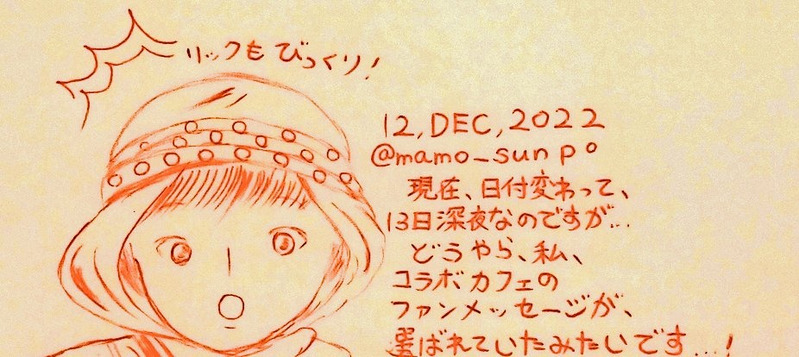 リックもびっくり!
12, DEC, 2022
@mamo_sunpo
現在、日付変わって、
13日深夜なのですが…
どうやら、私、
コラボカフェの
ファンメッセージが、
選ばれていたみたいです…!